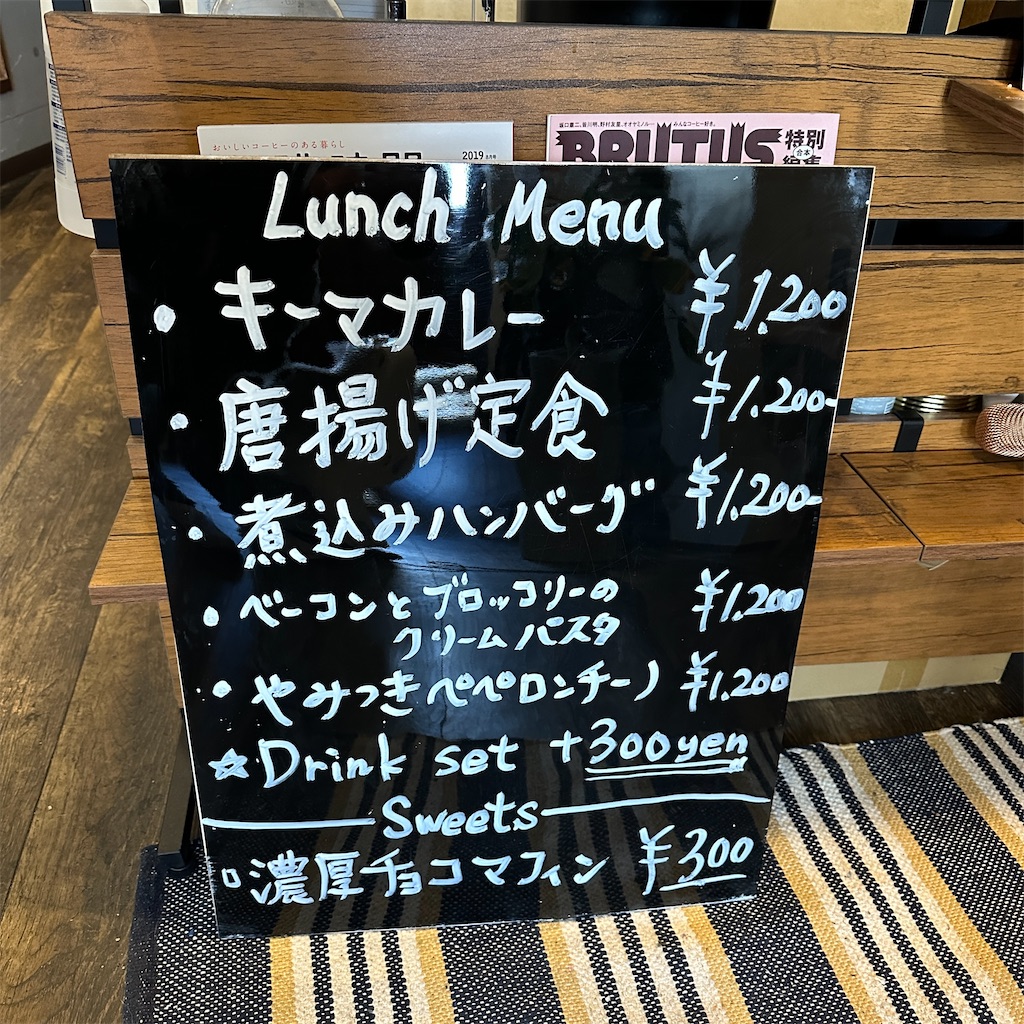 おいしいコーヒーのある暮らし
2019
BRUTUS
特別
合本
編集
みんなコーヒー好き。
Lunch Menu
・キーマカレー ¥1,200
・唐揚げ定食 ¥1,200-
・煮込みハンバーグ ¥1,200-
・ベーコンとブロッコリーの ¥1,200
クリームパスタ
・やみつきペペロンチーノ ¥1,200
☆Drink set +300yen
Sweets
▫濃厚チョコマフィン ¥300